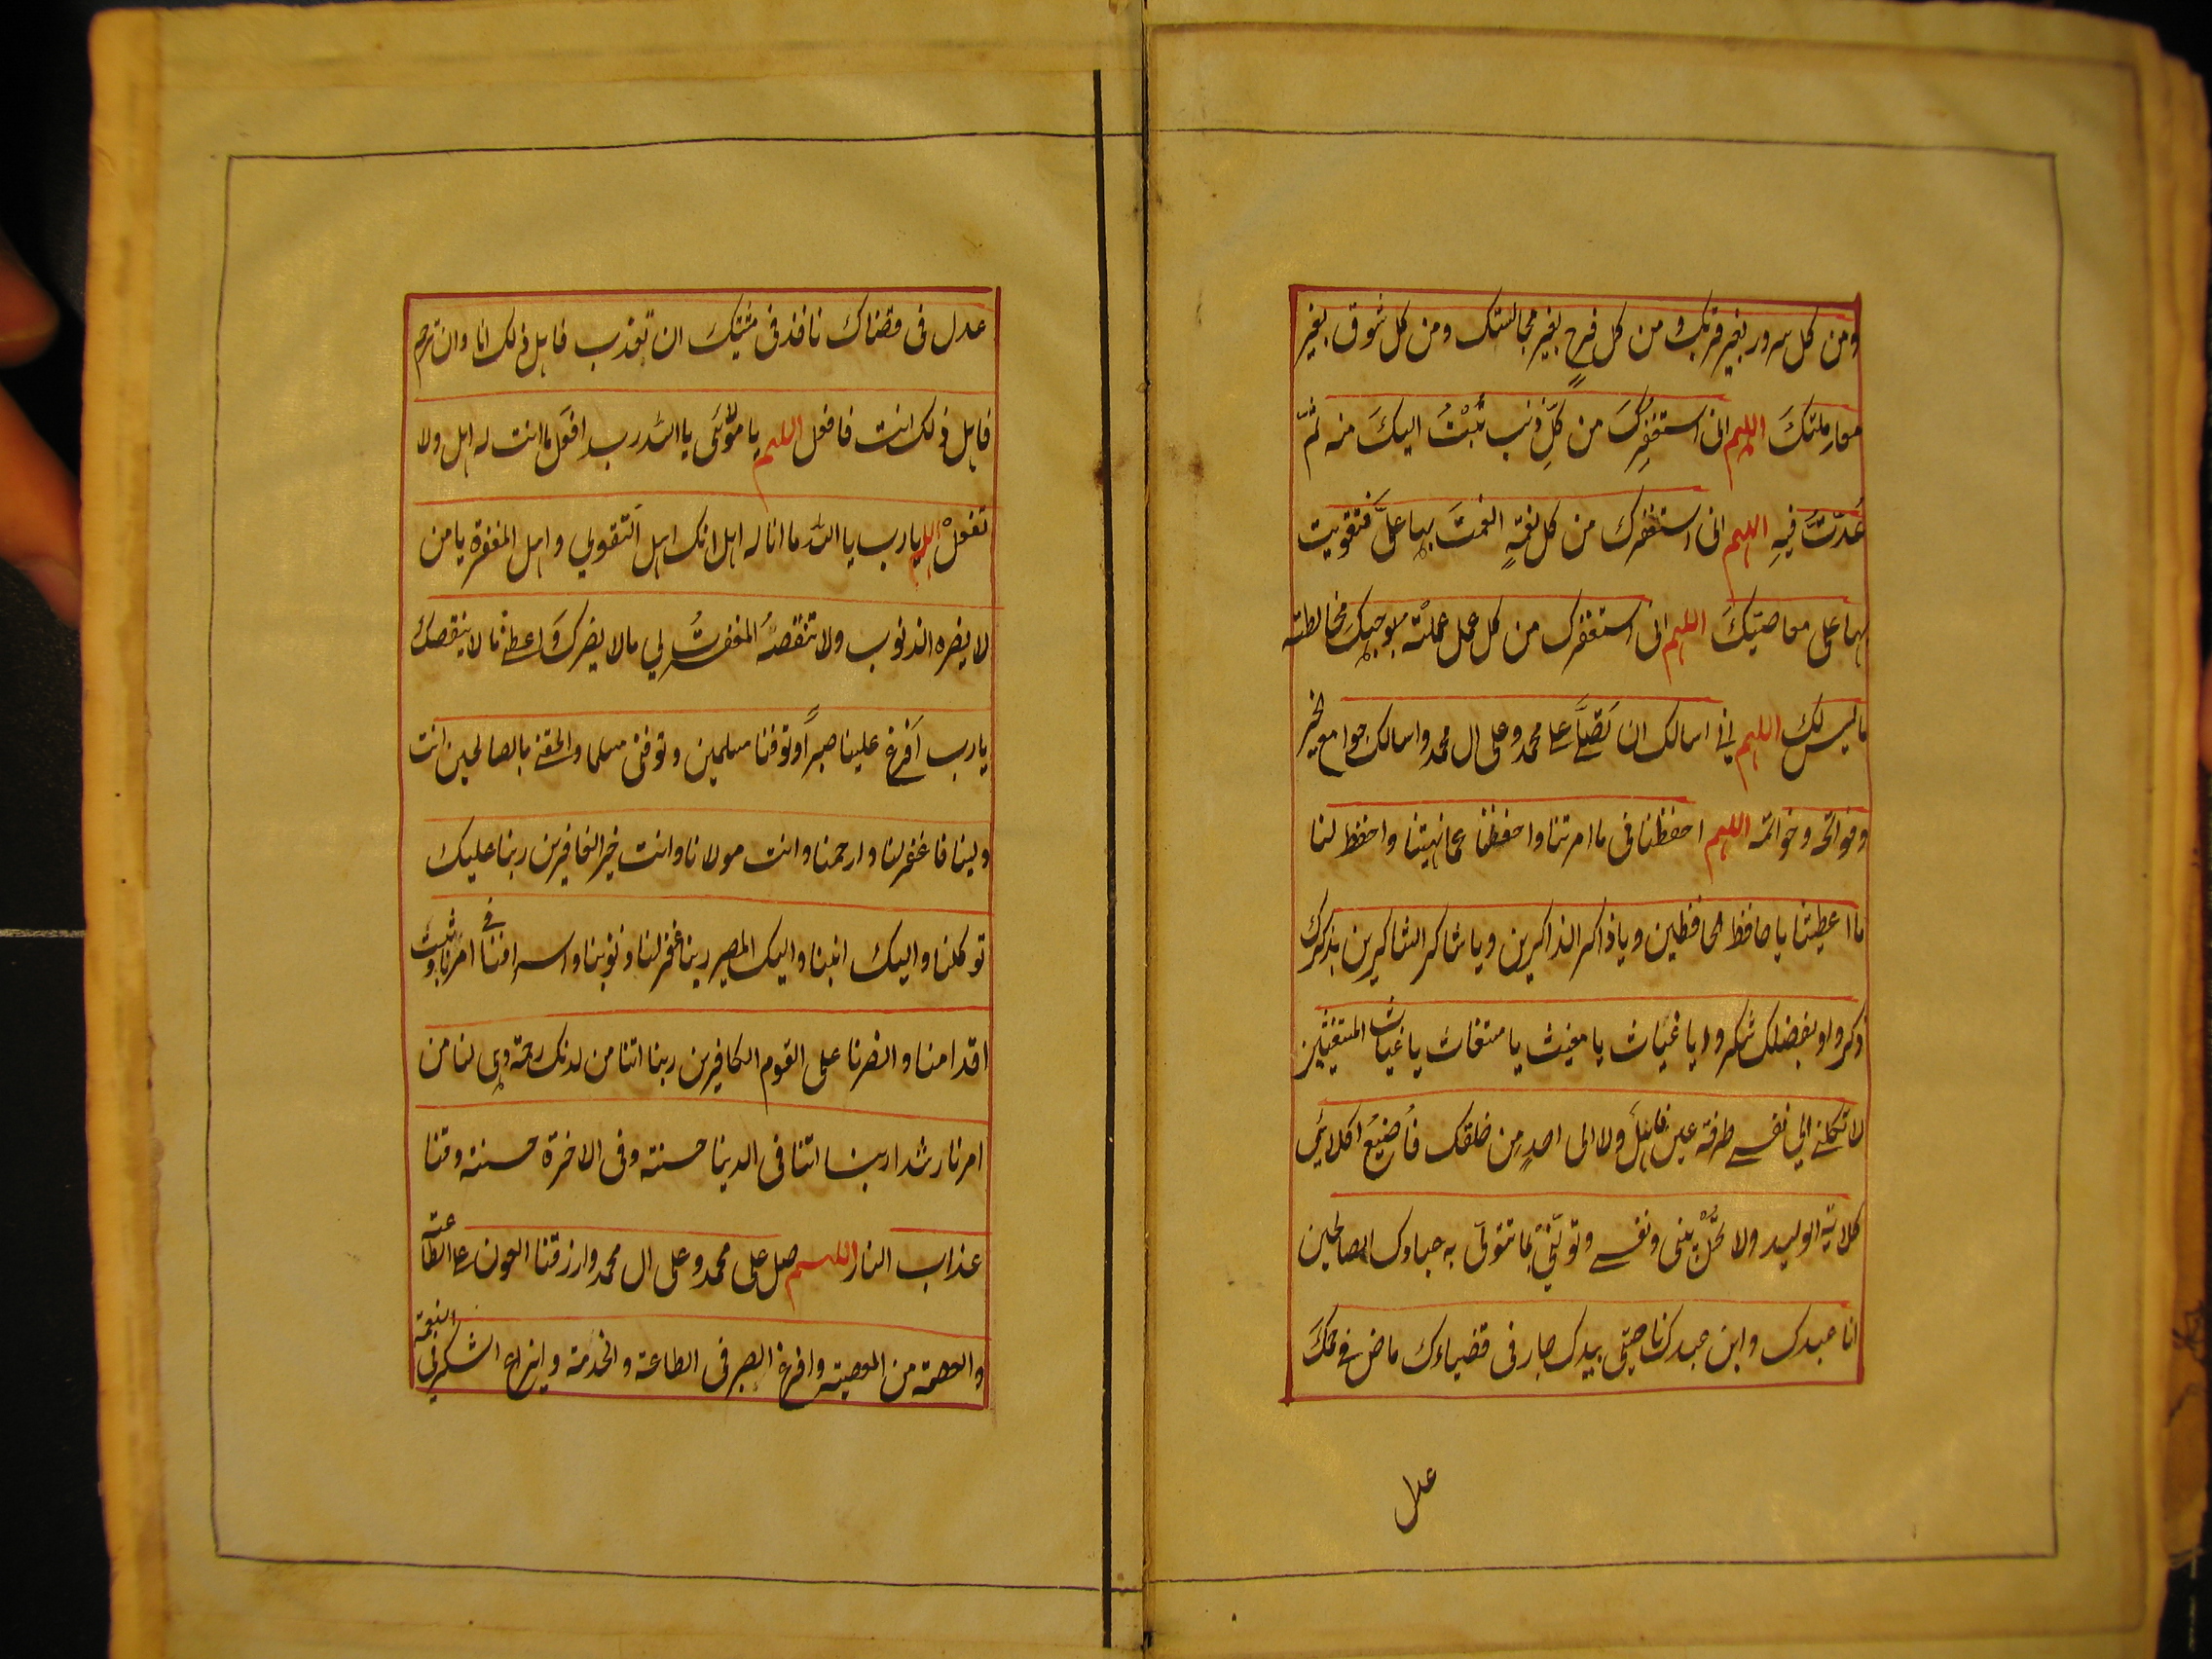 ومن كل سرور بغير قربك و من كل فرح بغير مجالستك ومن كل شوق بغير
معاملتك اللهم انى استغفرك من كل ذنب تبت اليك منه ثم
عدت فيه اللهم انى استغفرك من كل نعمة انعمت بها على فتقويت
بها على معاصيك اللهم انى استغفرك من كل عمل عملته بوجهك مخالطته
ما ليس لك اللهم انى اسالك ان تصلى على محمد وعلى ال محمد واسالك جوامع الخير
وفواتحه وخواتمه اللهم احفظنا فى ما امرتنا واحفظنا عما نهيتنا واحفظ لنا
ما اعطيتنا يا حافظ الحافظين ويا ذاكر الذاكرين ويا شاكر الشاكرين بذكرك
ذكروا وبفضلك شكروا يا غياث يا مغيث يا مستغاث يا غياث المستغيثين
لا تكلنى الى نفسى طرفة عين ولا الى احد من خلقك فاضيع اكلائى
كلائة الوليد ولا تخل بينى ونفسى وتولنى بما تتولى به عبادك الصالحين
انا عبدك وابن عبدك ناصيتى بيدك جار فى قضاءك ماض فى حكمك
عدل
عدل فى قضاك نافذ فى مشيتك ان تعذب فاهل ذلك انا وان ترحم
فاهل ذلك انت فافعل اللهم يا مولائى يا الله يا رب افعل ما انت له اهل ولا
تفعل اللهم يا رب يا الله ما انا له اهل انك اهل التقوى و اهل المغفرة يا من
لا يضره الذنوب ولا تنقصه المغفرت لى ما لا يضرك واعطنى ما لا ينقصك
يا رب افرغ علينا صبرا وتوفنا مسلمين وتوفنى مسلما والحقنى بالصالحين انت
ولينا فاغفر لنا وارحمنا وانت مولانا وانت خير الغافرين ربنا عليك
توكلنا واليك انبنا واليك المصير ربنا اغفر لنا ذنوبنا واسرافنا فى امرنا وثبت
اقدامنا وانصرنا على القوم الكافرين ربنا اتنا من لدنك رحمة وهى لنا من
امرنا رشدا ربنا اتنا فى الدنيا حسنة وفى الاخرة حسنة وقنا
عذاب النار اللهم صل على محمد وعلى ال محمد وارزقنا العون على الطاعة
والعصمة من المعصية وافرغ الصبر فى الطاعة والخدمة وايزاع الشكر فى النعمة